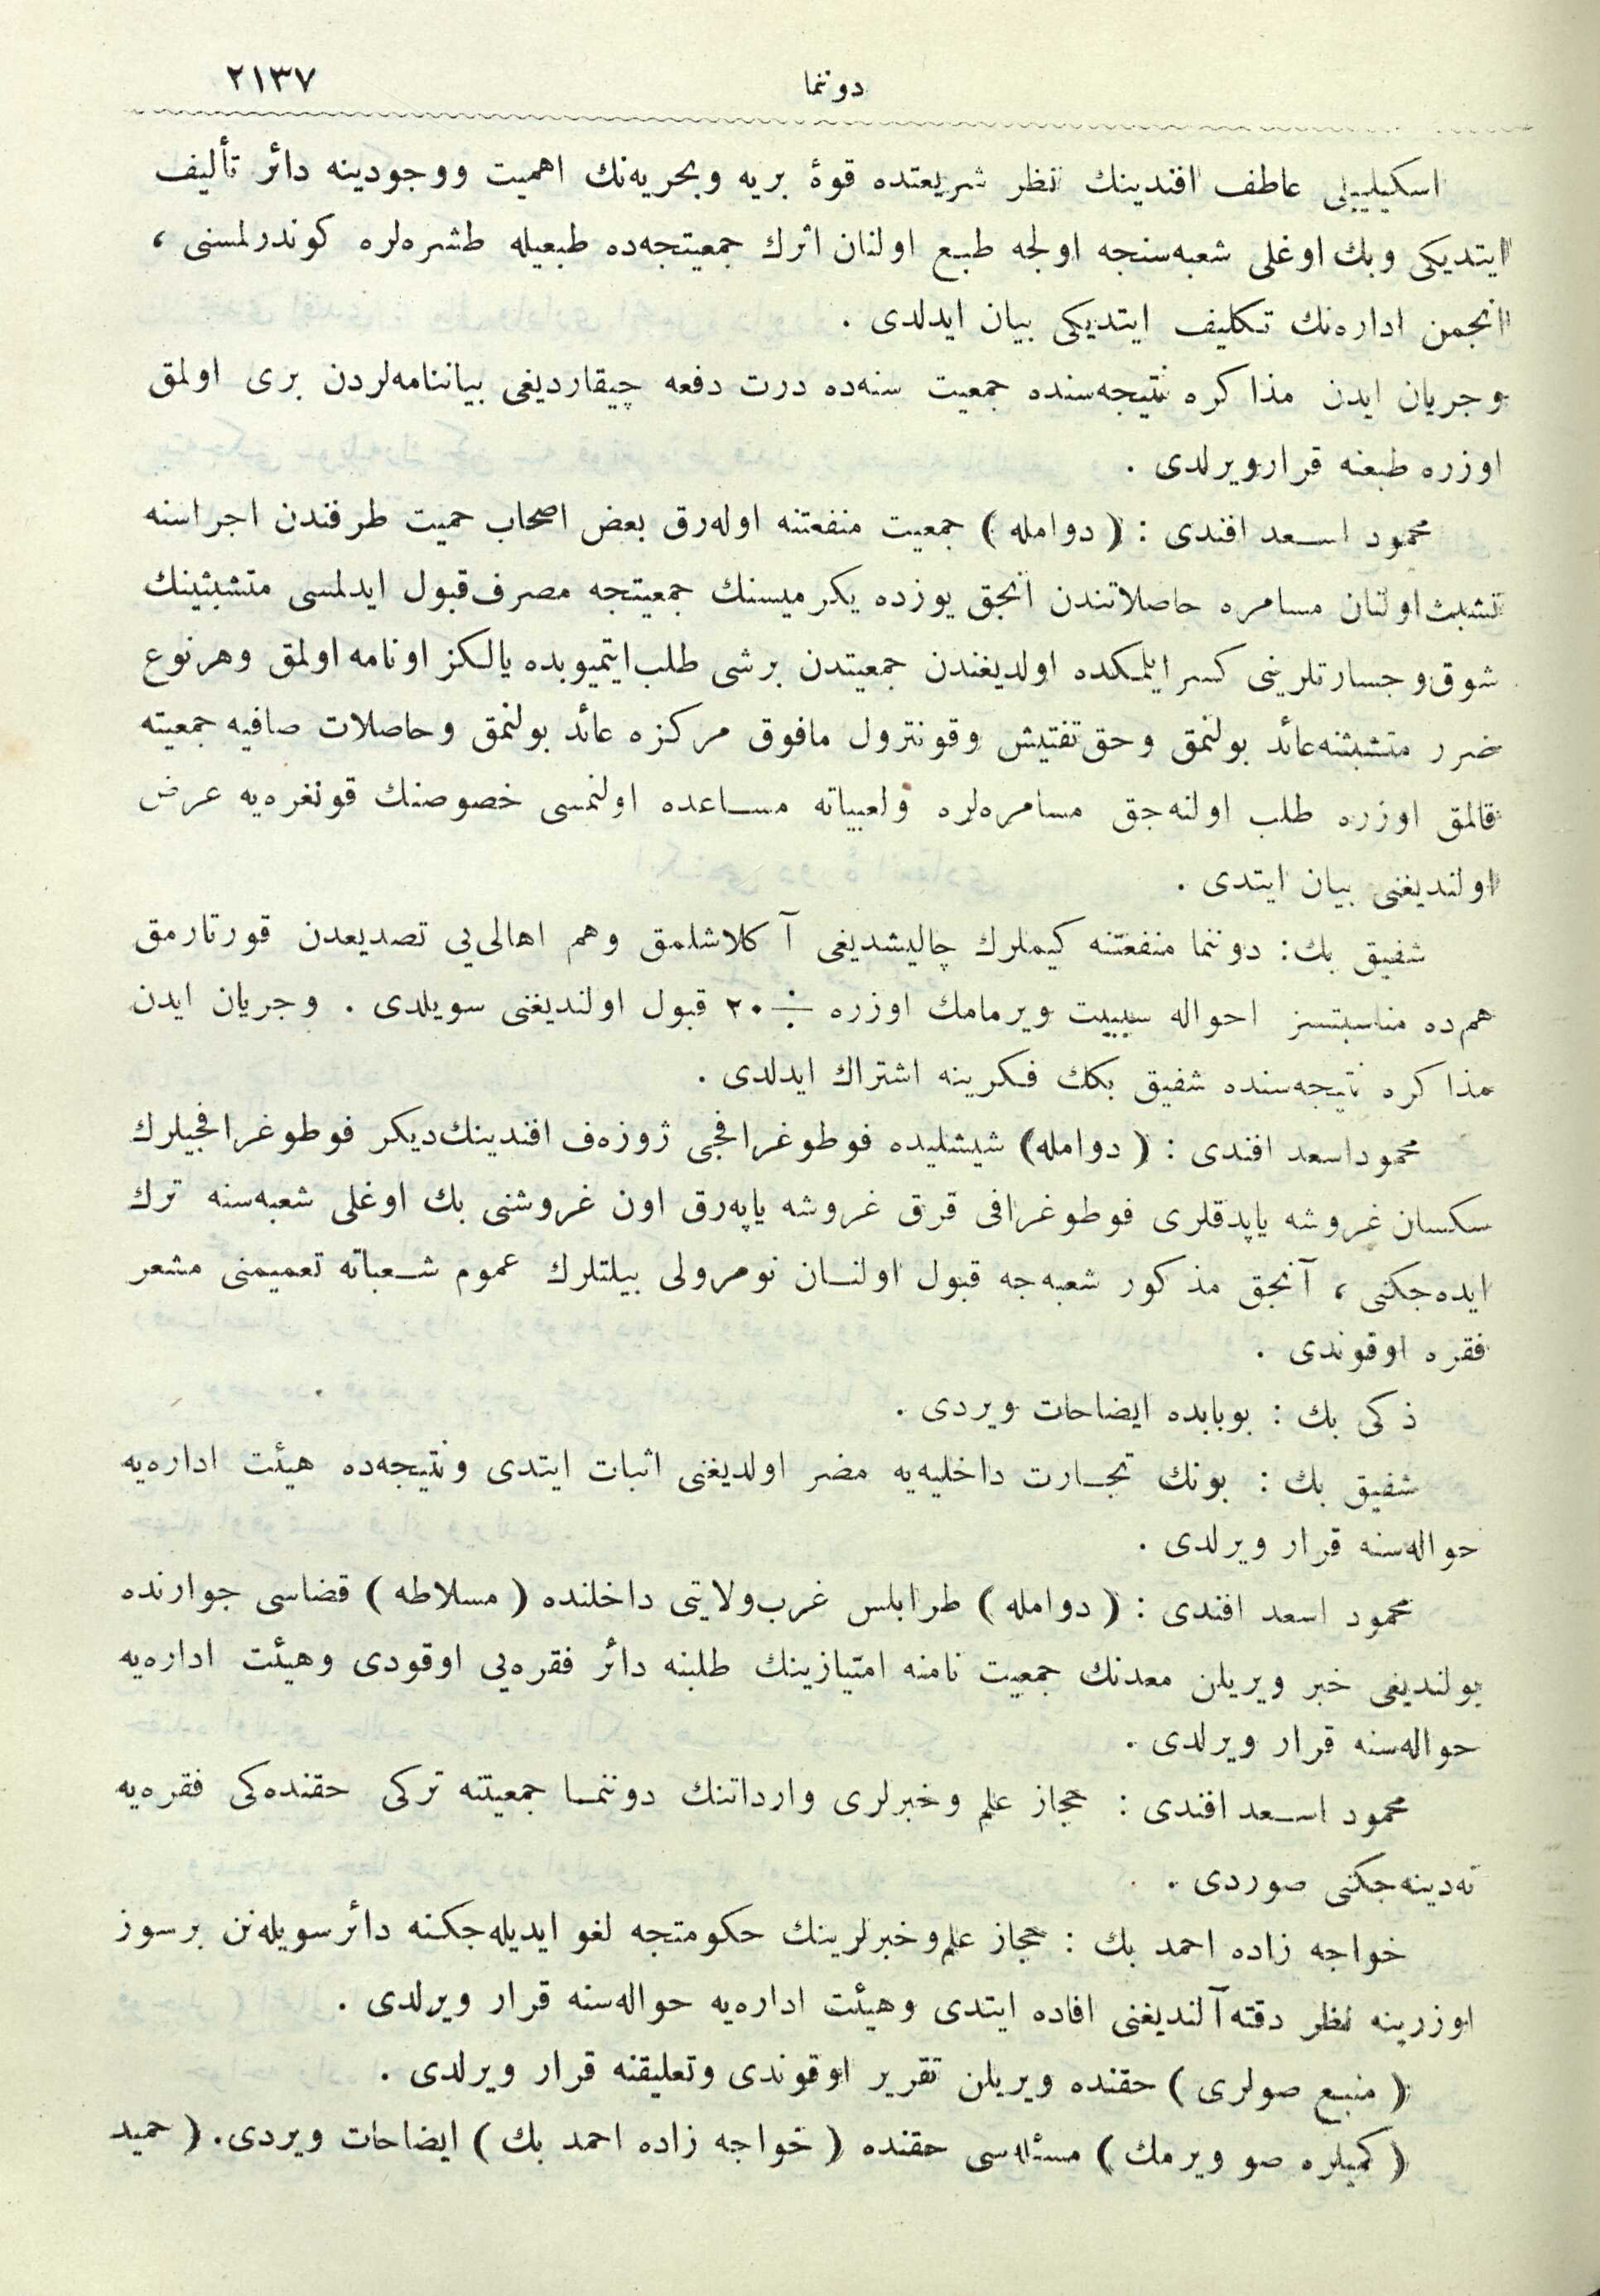 دوننما ٢١٣٧
اسكیلیپلی عاطف افندینك نظر شریعتده قوۀ بریه وبحریه‌نك اهمیت ووجودینه دائر تألیف
ایتدیكی وبك اوغلی شعبه‌سنجه اولجه طبع اولنان اثرك جمعیتجه‌ده طبعیله طشره‌لره كوندرلمسنی ،
انجمن اداره‌نك تكلیف ایتدیكی بیان ایدلدی .
وجریان ایدن مذاكره نتیجه‌سنده جمعیت سنه‌ده درت دفعه چیقاردیغی بیاننامه‌لردن بری اولمق
اوزره طبعنه قرارویرلدی .
محمود اسعد افندی : ( دوامله ) جمعیت منفعتنه اوله‌رق بعض اصحاب حمیت طرفندن اجراسنه
تشبث اولنان مسامره حاصلاتندن آنجق یوزده یكرمیسنك جمعیتجه مصرف قبول ایدلمسی متشبثینك
شوق وجسارتلرینی كسر ایلمكده اولدیغندن جمعیتدن برشی طلب ایتمیوبده یالكز اونامه اولمق وهرنوع
ضرر متشبثنه عائد بولنمق وحق تفتیش وقونترول مافوق مركزه عائد بولنمق وحاصلات صافیه جمعیته
قالمق اوزره طلب اولنه‌جق مسامره‌لره ولعبیاته مساعده اولنمسی خصوصنك قونغره‌یه عرض
اولندیغنی بیان ایتدی .
شفیق بك : دوننما منفعتنه كیملرك چالیشدیغی آكلاشلمق وهم اهالی‌یی تصدیعدن قورتارمق
هم‌ده مناسبتسز احواله سببیت ویرمامك اوزره ٪ ٢٠ قبول اولندیغنی سویلدی . وجریان ایدن
مذاكره نتیجه‌سنده شفیق بكك فكرینه اشتراك ایدلدی .
محموداسعد افندی : ( دوامله ) شیشلیده فوطوغرافجی ژوزه‌ف افندینك دیكر فوطوغرافجیلرك
سكسان غروشه یاپدقلری فوطوغرافی قرق غروشه یاپه‌رق اون غروشنی بك اوغلی شعبه‌سنه ترك
ایده‌جكنی ، آنجق مذكور شعبه‌جه قبول اولنان نومرولی بیلتلرك عموم شعباته تعمیمنی مشعر
فقره اوقوندی .
ذكی بك : بوبابده ایضاحات ویردی .
شفیق بك : بونك تجارت داخلیه‌یه مضر اولدیغنی اثبات ایتدی ونتیجه‌ده هیئت اداره‌یه
حواله‌سنه قرار ویرلدی .
محمود اسعد افندی : ( دوامله ) طرابلس غرب ولایتی داخلنده ( مسلاطه ) قضاسی جوارنده
بولندیغی خبر ویریلن معدنك جمعیت نامنه امتیازینك طلبنه دائر فقره‌یی اوقودی وهیئت اداره‌یه
حواله‌سنه قرار ویرلدی .
محمود اسعد افندی : حجاز علم وخبرلری وارداتنك دوننما جمعیتنه تركی حقنده‌كی فقره‌یه
نه‌دینه‌جكنی صوردی .
خواجه زاده احمد بك : حجاز علم وخبرلرینك حكومتجه لغو ایدیله‌جكنه دائر سویله‌نن برسوز
اوزرینه نظر دقته آلندیغنی افاده ایتدی وهیئت اداره‌یه حواله‌سنه قرار ویرلدی .
( منبع صولری ) حقنده ویریلن تقریر اوقوندی وتعلیقنه قرار ویرلدی .
( كمیلره صو ویرمك ) مسئله‌سی حقنده ( خواجه زاده احمد بك ) ایضاحات ویردی . ( حمید